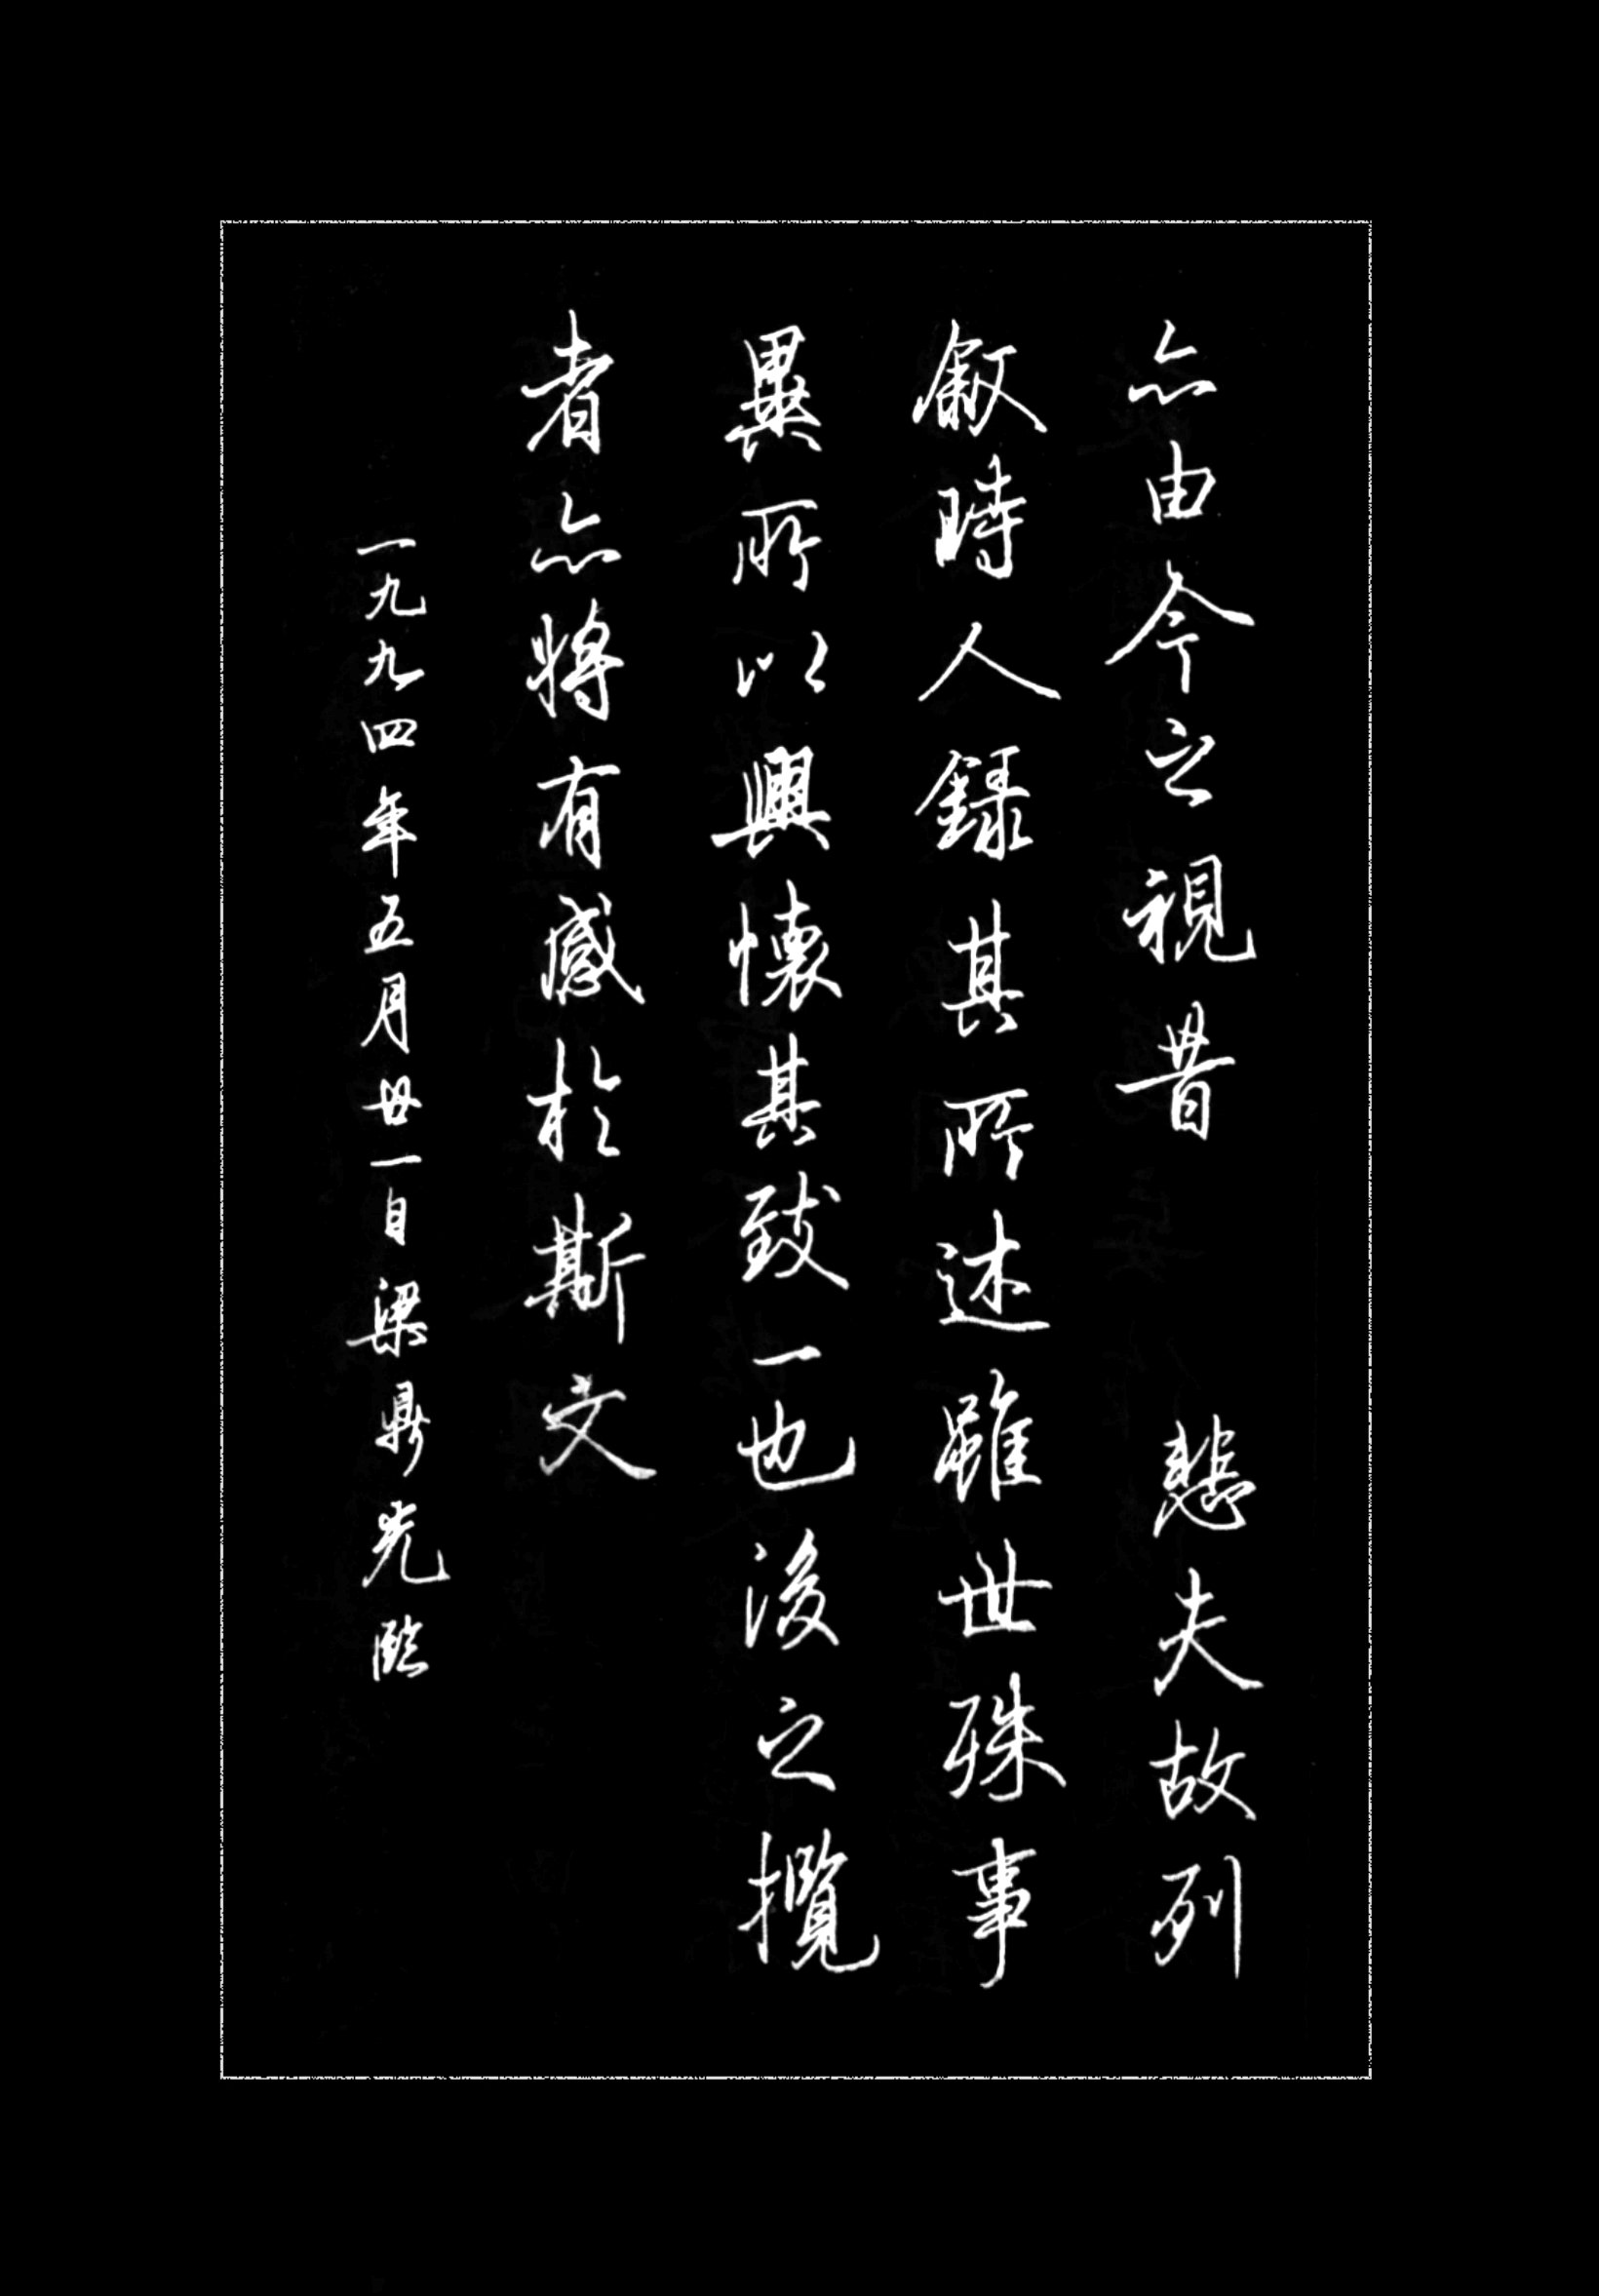 亦由今之視昔 悲夫故列
敘時人錄其所述雖世殊事
異所以興懷其致一也後之攬
者亦將有感於斯文
一九九四年五月廿一日梁鼎光臨